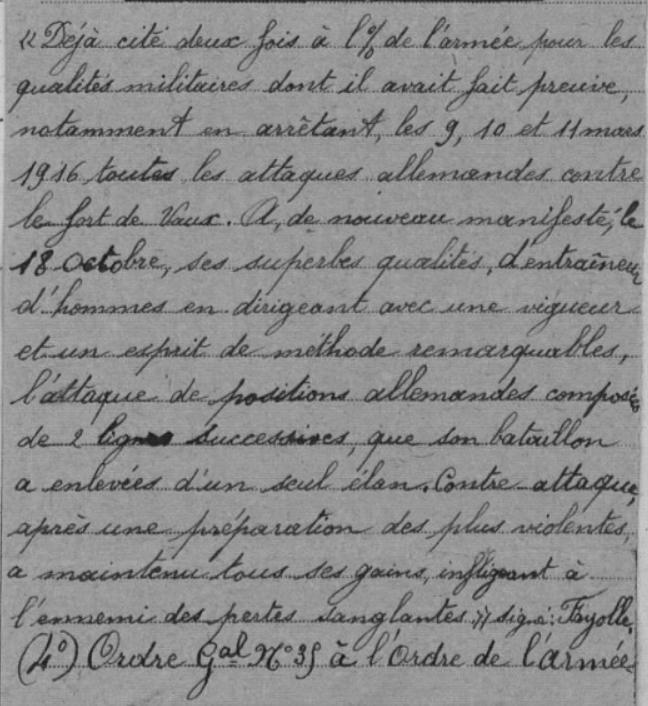 « Déjà cité deux fois à l'% de l'armée pour les
qualités militaires dont il avait fait preuve,
notamment en arrêtant, les 9, 10 et 11 mars
1916 toutes les attaques allemandes contre
le fort de Vaux. A, de nouveau manifesté, le
18 octobre, ses superbes qualités, d'entraîneur
d'hommes en dirigeant avec une vigueur
et un esprit de méthode remarquables,
l'attaque de positions allemandes composées
de 2 lignes successives, que son bataillon
a enlevées d'un seul élan. Contre-attaqué,
après une préparation des plus violentes,
a maintenu tous ses gains, infligeant à
l'ennemi des pertes sanglantes » signé: Fayolle.
(4°) Ordre Gal N° 35 à l'Ordre de l'armée